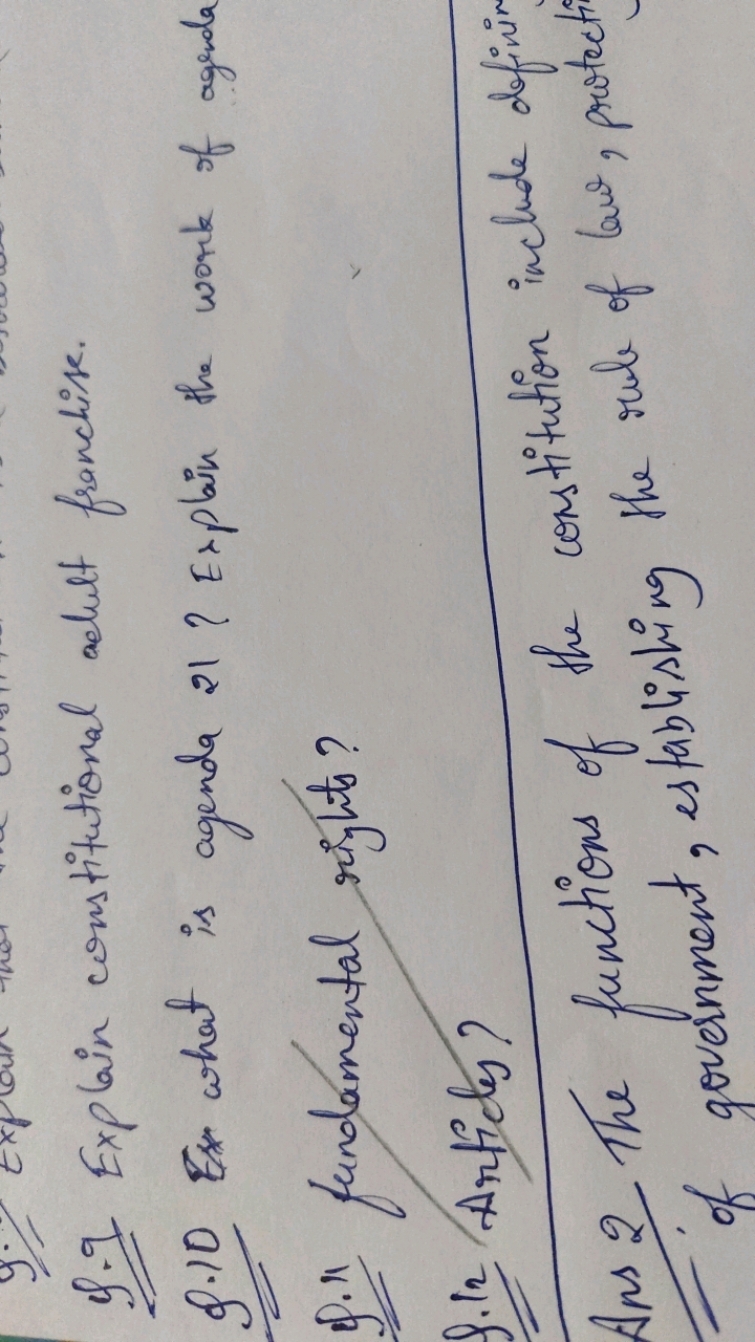 Explain that the
Q.9 Explain constitutional adult franchise.
Q.10 what is agenda 21? Explain the work of agenda
Q.11 fundamental rights?
Q.12 Articles?
Ans 2 The functions of the constitution include defining
of government, establishing the rule of law, protecti